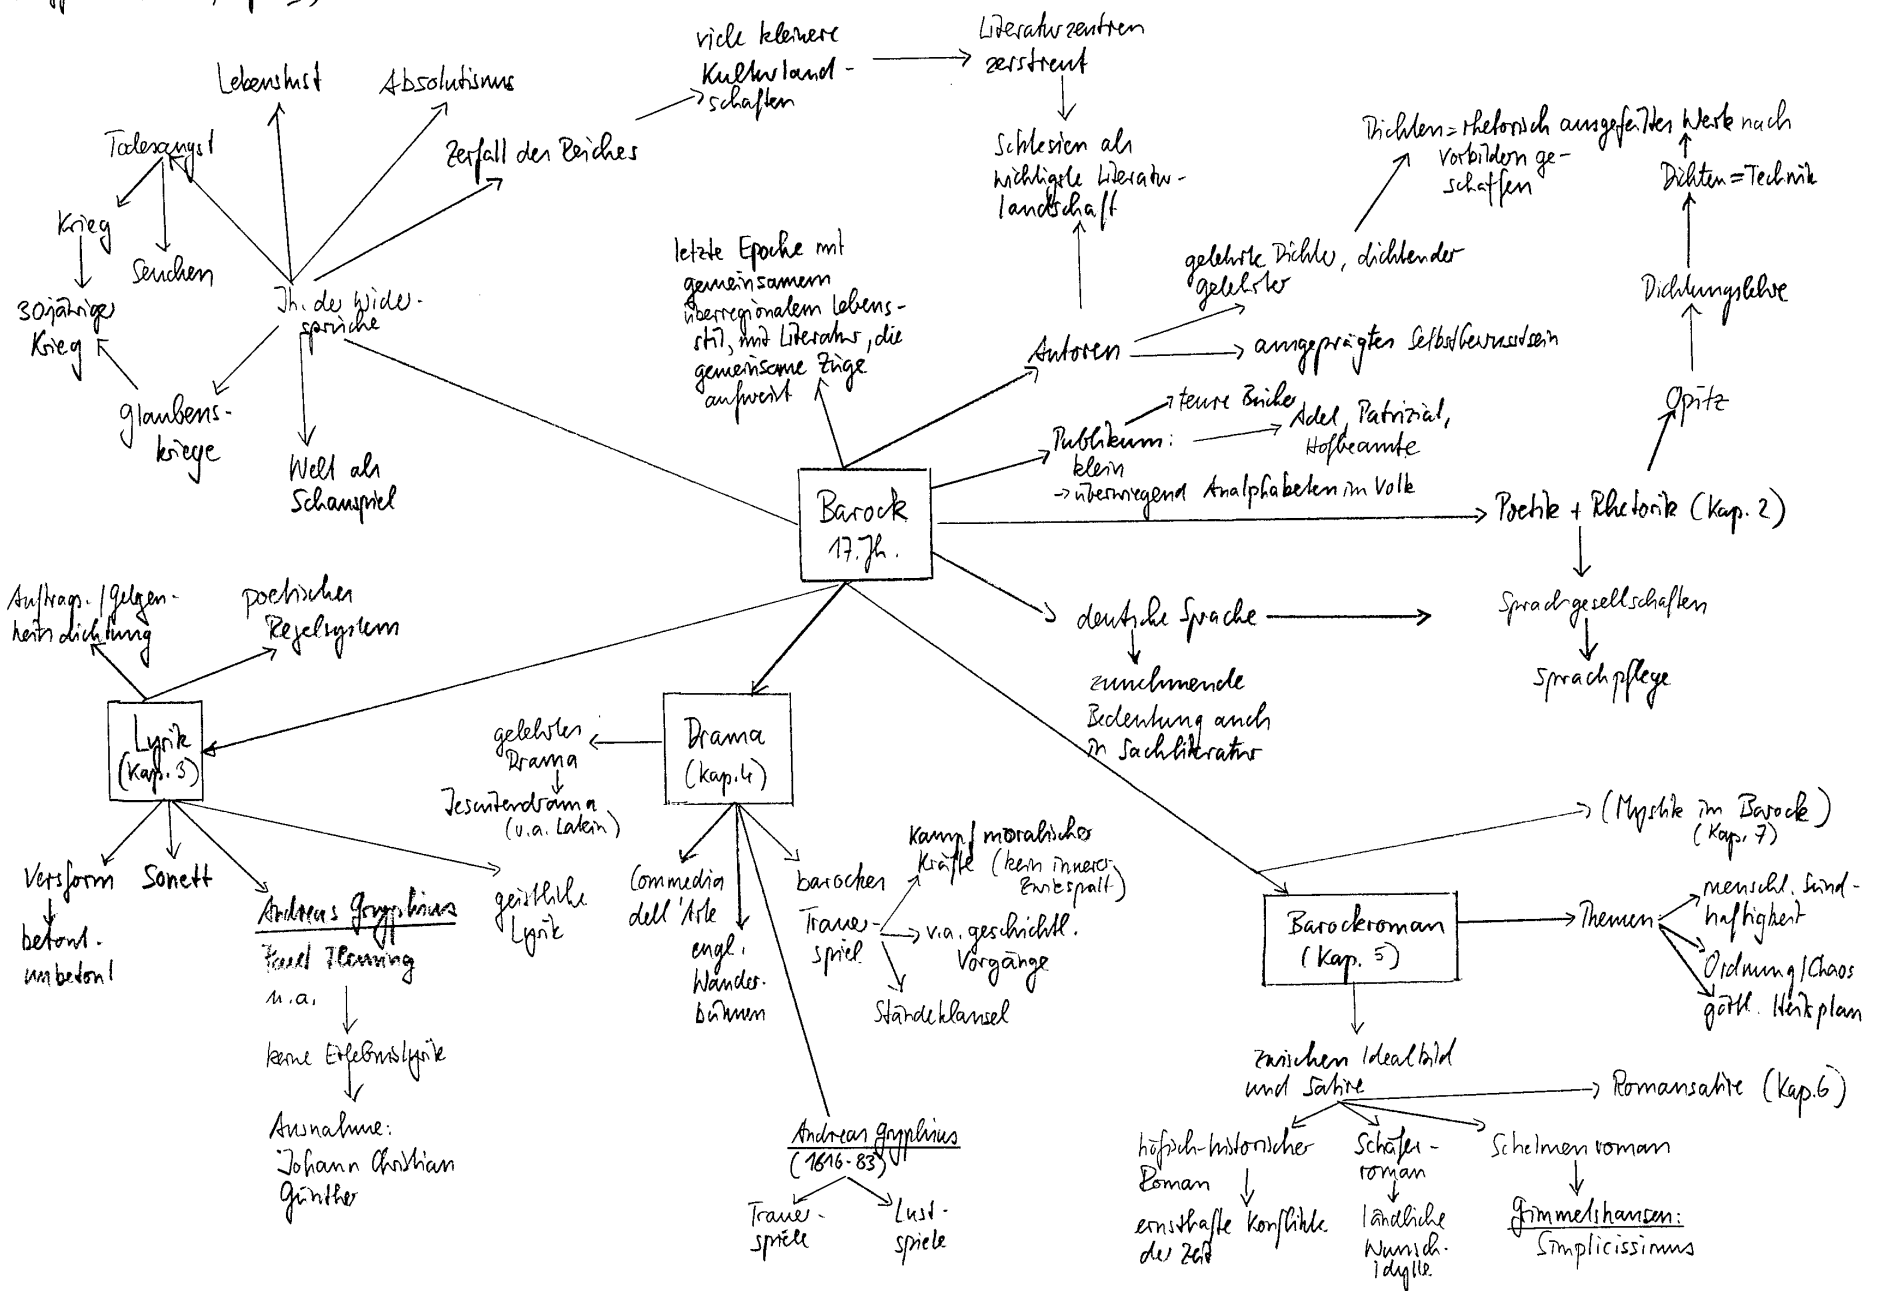 Lebenslust
Absolutismus
Todesangst
Zerfall des Reiches
viele kleinere
Kulturland-
schaften
Literaturzentren
zerstreut
Schlesien als
wichtigste Literatur-
landschaft
Krieg
Seuchen
30jähriger
Krieg
Jh. der Wider-
sprüche
Glaubens-
kriege
Welt als
Schauspiel
letzte Epoche mit
gemeinsamem
überregionalem Lebens-
stil, mit Literatur, die
gemeinsame Züge
aufweist
Autoren
gelehrte Dichter, dichtender
Gelehrter
ausgeprägtes Selbstbewusstsein
Dichten = rhetorisch ausgefeiltes Werk nach
Vorbildern ge-
schaffen
Dichten = Technik
Dichtungslehre
Opitz
Publikum:
klein
→ überwiegend Analphabeten im Volk
teure Bücher
Adel, Patrizial,
Hofbeamte
Barock
17. Jh.
Poetik + Rhetorik (Kap. 2)
Sprachgesellschaften
Sprachpflege
deutsche Sprache
zunehmende
Bedeutung auch
in Sachliteratur
Auftrags-/Gelgen-
heitsdichtung
poetisches
Regelsystem
Lyrik
(Kap. 3)
Versform
betont-
unbetont
Sonett
Andreas Gryphius
Paul Fleming
u.a.
keine Erlebnislyrik
Ausnahme:
Johann Christian
Günther
geistliche
Lyrik
Drama
(Kap. 4)
gelehrtes
Drama
Jesuitendrama
(v.a. Latein)
Commedia
dell'Arte
engl.
Wander-
bühnen
barockes
Trauer-
spiel
Kampf moralischer
Kräfte (kein innerer
Zwiespalt)
v.a. geschichtl.
Vorgänge
Ständeklausel
Andreas Gryphius
(1616-83)
Trauer-
spiele
Lust-
spiele
(Mystik im Barock)
(Kap. 7)
Barockroman
(Kap. 5)
Themen
menschl. Sünd-
haftigkeit
Ordnung/Chaos
göttl. Heilsplan
zwischen Idealbild
und Satire
Romansatire (Kap. 6)
höfisch-historischer
Roman
ernsthafte Konflikte
der Zeit
Schäfer-
roman
ländliche
Wunsch-
idylle
Schelmenroman
Grimmelshausen:
Simplicissimus